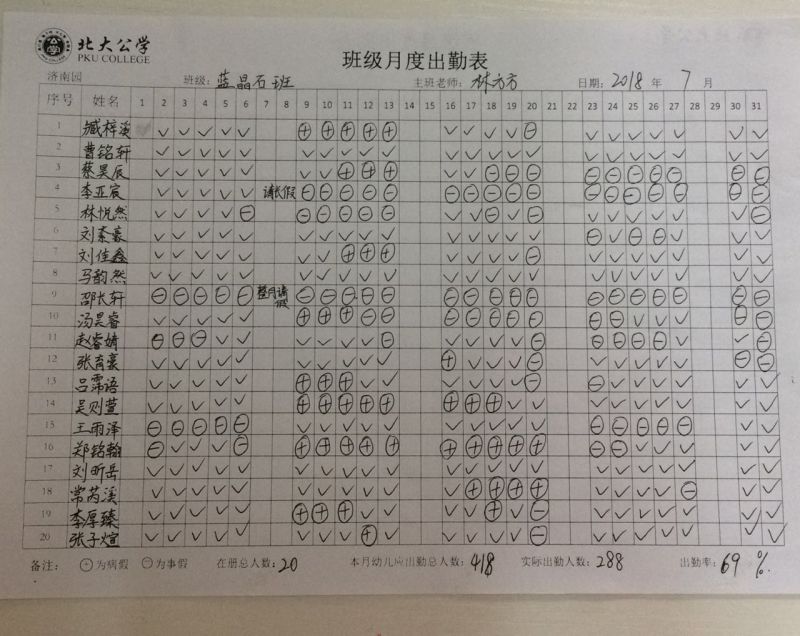 北大公学
PKU COLLEGE
班级月度出勤表
济南园 班级: 蓝晶石班 主班老师: 林方方 日期: 2018 年 7 月
序号 姓名 1 2 3 4 5 6 7 8 9 10 11 12 13 14 15 16 17 18 19 20 21 22 23 24 25 26 27 28 29 30 31
1 臧梓溪 ✓ ✓ ✓ ✓ ✓ ⊕ ⊕ ⊕ ⊕ ⊕ ✓ ✓ ✓ ✓ ⊖ ✓ ✓ ✓ ✓ ✓ ✓ ✓
2 曹铭轩 ✓ ✓ ✓ ✓ ✓ ✓ ✓ ✓ ✓ ✓ ✓ ✓ ✓ ✓ ✓ ✓ ✓ ✓ ✓ ✓ ✓ ✓
3 蔡昊辰 ✓ ✓ ✓ ✓ ✓ ✓ ✓ ⊕ ⊕ ⊕ ✓ ✓ ⊖ ⊖ ⊖ ⊖ ⊖ ⊖ ⊖ ⊖ ⊖ ⊖
4 李亚宸 ✓ ✓ ✓ ✓ ✓ 请长假 ⊖ ⊖ ⊖ ⊖ ⊖ ⊖ ⊖ ⊖ ⊖ ⊖ ⊖ ⊖ ⊖ ⊖ ⊖ ⊖ ⊖
5 林悦然 ✓ ✓ ✓ ✓ ⊖ ⊖ ⊖ ⊖ ⊖ ⊖ ✓ ✓ ⊖ ✓ ⊖ ✓ ✓ ✓ ✓ ✓ ✓ ⊖
6 刘豪 ✓ ✓ ✓ ✓ ✓ ✓ ✓ ✓ ✓ ✓ ✓ ✓ ✓ ✓ ✓ ⊖ ✓ ⊖ ⊖ ✓ ✓ ✓
7 刘佳鑫 ✓ ✓ ✓ ✓ ✓ ✓ ✓ ⊕ ⊕ ⊕ ✓ ✓ ✓ ✓ ⊖ ✓ ✓ ✓ ✓ ✓ ✓ ✓
8 马韵然 ✓ ✓ ✓ ✓ ✓ ✓ ✓ ✓ ✓ ✓ ✓ ✓ ✓ ✓ ✓ ✓ ✓ ✓ ✓ ✓ ✓ ✓
9 邵长轩 ⊖ ⊖ ⊖ ⊖ ⊖ 整月请假 ⊖ ⊖ ⊖ ⊖ ⊖ ⊖ ⊖ ⊖ ⊖ ⊖ ⊖ ⊖ ⊖ ⊖ ⊖ ⊖ ⊖
10 冯昊睿 ✓ ✓ ✓ ✓ ✓ ⊕ ⊕ ⊕ ⊖ ⊖ ⊖ ⊖ ⊖ ⊖ ⊖ ⊖ ⊖ ✓ ✓ ✓ ⊖ ⊖
11 赵睿婧 ⊖ ⊖ ⊖ ✓ ✓ ✓ ✓ ✓ ✓ ⊖ ✓ ✓ ✓ ✓ ⊖ ⊖ ⊖ ⊖ ⊖ ✓ ⊖ ⊖
12 张育豪 ✓ ✓ ✓ ✓ ✓ ✓ ✓ ✓ ✓ ✓ ⊕ ✓ ✓ ✓ ⊖ ✓ ✓ ✓ ✓ ✓ ⊖ ⊖
13 吕霈语 ✓ ✓ ✓ ✓ ✓ ⊕ ⊕ ⊕ ✓ ✓ ✓ ✓ ✓ ✓ ⊖ ⊖ ✓ ✓ ✓ ✓ ✓ ✓
14 吴则萱 ✓ ✓ ✓ ✓ ✓ ⊕ ⊕ ⊕ ⊕ ⊕ ⊕ ⊕ ⊕ ✓ ✓ ✓ ✓ ✓ ✓ ✓ ✓ ✓
15 王雨泽 ⊖ ⊖ ⊖ ⊖ ⊖ ✓ ✓ ✓ ✓ ✓ ✓ ✓ ✓ ✓ ✓ ⊖ ⊖ ⊖ ⊖ ⊖ ✓ ✓
16 郑铭翰 ⊖ ✓ ✓ ✓ ⊖ ⊕ ⊕ ⊕ ⊕ ⊕ ⊕ ⊕ ⊕ ⊕ ⊕ ⊖ ⊖ ✓ ✓ ✓ ✓ ✓
17 刘昕岳 ✓ ✓ ✓ ✓ ✓ ✓ ✓ ✓ ✓ ✓ ✓ ✓ ✓ ✓ ✓ ✓ ✓ ✓ ✓ ✓ ✓ ✓
18 常芮溪 ✓ ✓ ✓ ✓ ✓ ✓ ✓ ✓ ✓ ✓ ✓ ⊕ ⊕ ⊕ ⊕ ✓ ✓ ✓ ✓ ⊖ ✓ ✓
19 李厚臻 ✓ ✓ ✓ ✓ ✓ ⊕ ⊕ ⊕ ✓ ✓ ✓ ✓ ⊕ ✓ ⊖ ✓ ✓ ✓ ✓ ✓ ✓ ✓
20 张子煊 ✓ ✓ ✓ ✓ ✓ ✓ ✓ ✓ ⊕ ✓ ✓ ✓ ✓ ✓ ⊖ ✓ ✓ ✓ ✓ ✓ ✓ ✓
备注: ⊕为病假 ⊖为事假 在册总人数: 20 本月幼儿应出勤总人数: 418 实际出勤人数: 288 出勤率: 69 %.